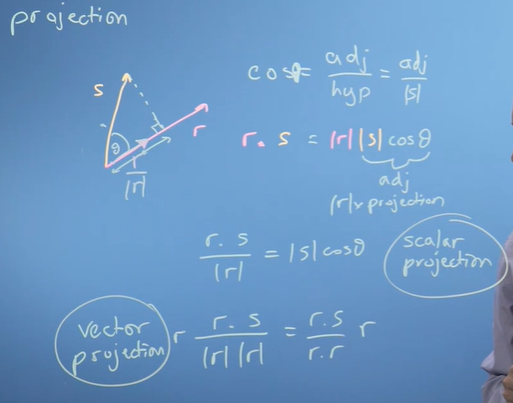 projection
cosθ = adj/hyp = adj/|s|
s
r
θ
1/|r|
r. s = |r||s|cosθ
adj
|r|x projection
r. s/|r| = |s|cosθ
scalar
projection
vector
projection
r r. s/|r||r| = r.s/r.r r